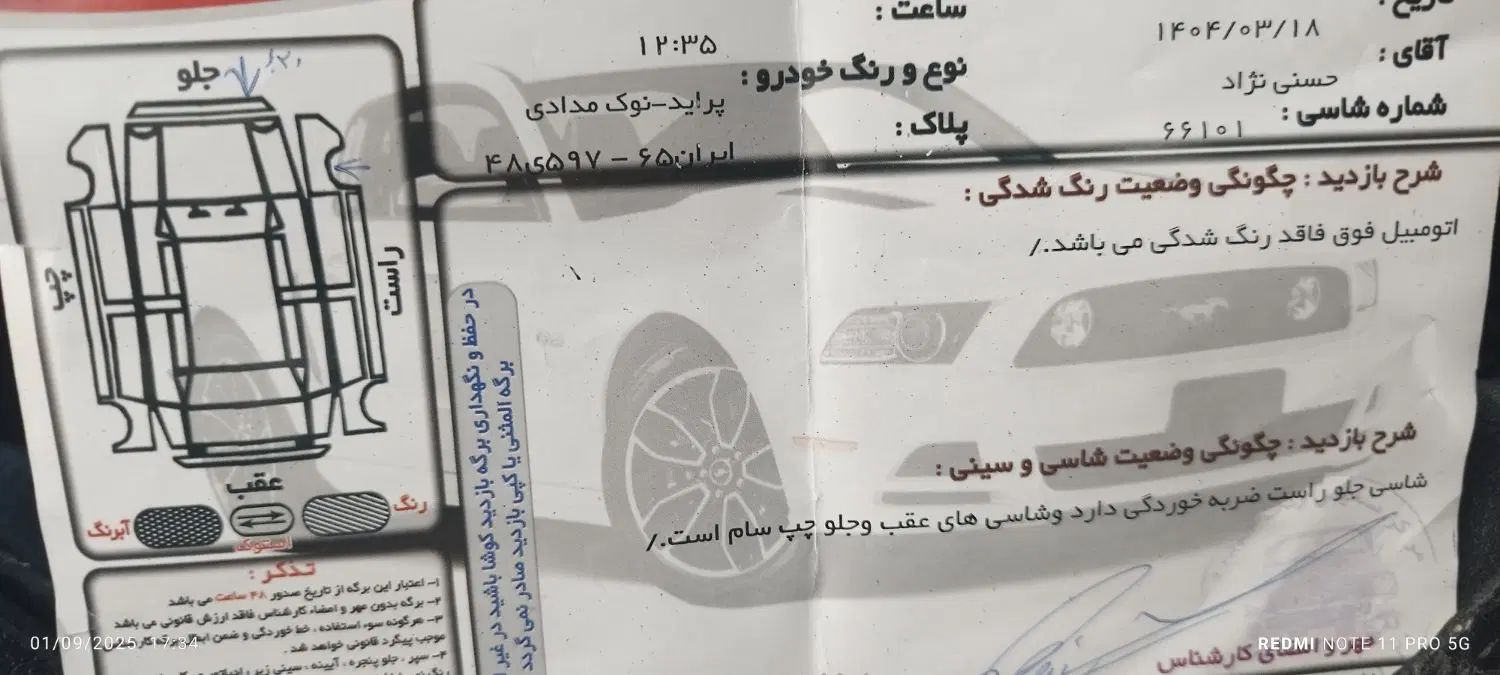 ساعت :
۱۲:۳۵
نوع و رنگ خودرو :
پراید-نوک مدادی
پلاک :
ایران۶۵ - ۵۹۷ی۴۸
تاریخ :
۱۴۰۴/۰۳/۱۸
آقای :
حسنی نژاد
شماره شاسی :
۶۶۱۰۱
شرح بازدید : چگونگی وضعیت رنگ شدگی :
اتومبیل فوق فاقد رنگ شدگی می باشد./
شرح بازدید : چگونگی وضعیت شاسی و سینی :
شاسی جلو راست ضربه خوردگی دارد وشاسی های عقب وجلو چپ سام است./
مهر و امضای کارشناس
جلو
راست
چپ
عقب
رنگ
استوک
آبرنگ
در حفظ و نگهداری برگه بازدید کوشا باشید در غیر
برگه المثنی یا کپی بازدید صادر نمی گردد
تذکر :
۱- اعتبار این برگه از تاریخ صدور ۴۸ ساعت می باشد
۲- برگه بدون مهر و امضاء کارشناس فاقد ارزش قانونی می باشد
۳- هرگونه سوء استفاده ، خط خوردگی و ضمن
موجب پیگرد قانونی خواهد شد .
۴- سپر ، جلو پنجره ، آیینه ، سینی زیر
01/09/2025 17:34
REDMI NOTE 11 PRO 5G